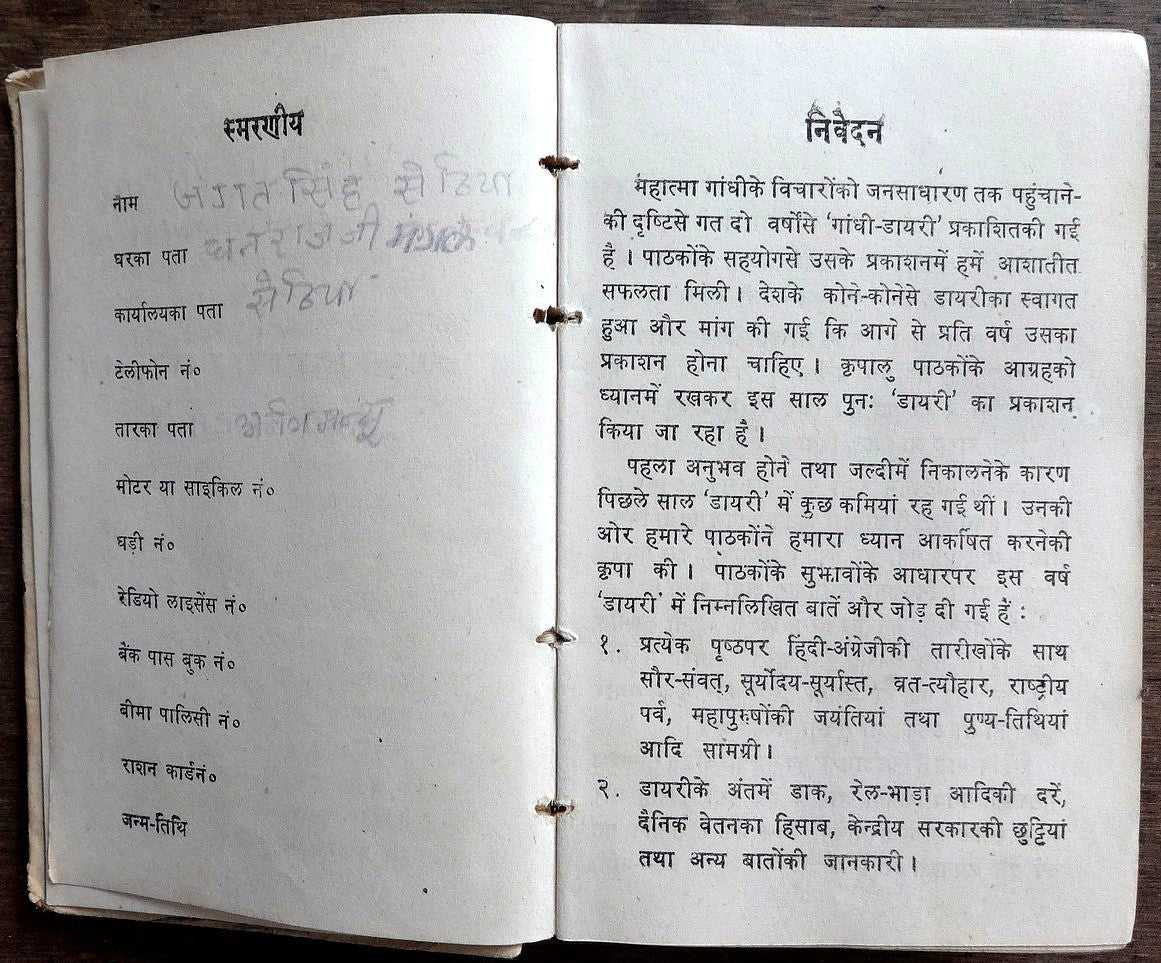 स्मरणीय
नाम जगत सिंह सेठिया
घरका पता धनराजजी
कार्यालयका पता सेठिया
टेलीफोन नं०
तारका पता
मोटर या साइकिल नं०
घड़ी नं०
रेडियो लाइसेंस नं०
बैंक पास बुक नं०
बीमा पालिसी नं०
राशन कार्डनं०
जन्म-तिथि
निवेदन
महात्मा गांधीके विचारोंको जनसाधारण तक पहुंचाने-
की दृष्टिसे गत दो वर्षोंसे ‘गांधी-डायरी’ प्रकाशितकी गई
है । पाठकोंके सहयोगसे उसके प्रकाशनमें हमें आशातीत
सफलता मिली। देशके कोने-कोनेसे डायरीका स्वागत
हुआ और मांग की गई कि आगे से प्रति वर्ष उसका
प्रकाशन होना चाहिए । कृपालु पाठकोंके आग्रहको
ध्यानमें रखकर इस साल पुनः ‘डायरी’ का प्रकाशन
किया जा रहा है ।
पहला अनुभव होने तथा जल्दीमें निकालनेके कारण
पिछले साल ‘डायरी’ में कुछ कमियां रह गई थीं । उनकी
ओर हमारे पाठकोंने हमारा ध्यान आकर्षित करनेकी
कृपा की । पाठकोंके सुझावोंके आधारपर इस वर्ष
‘डायरी’ में निम्नलिखित बातें और जोड़ दी गई हैं :
१. प्रत्येक पृष्ठपर हिंदी-अंग्रेजीकी तारीखोंके साथ
सौर-संवत्, सूर्योदय-सूर्यास्त, व्रत-त्यौहार, राष्ट्रीय
पर्व, महापुरुषोंकी जयंतियां तथा पुण्य-तिथियां
आदि सामग्री ।
२. डायरीके अंतमें डाक, रेल-भाड़ा आदिकी दरें,
दैनिक वेतनका हिसाब, केन्द्रीय सरकारकी छुट्टियां
तथा अन्य बातोंकी जानकारी ।